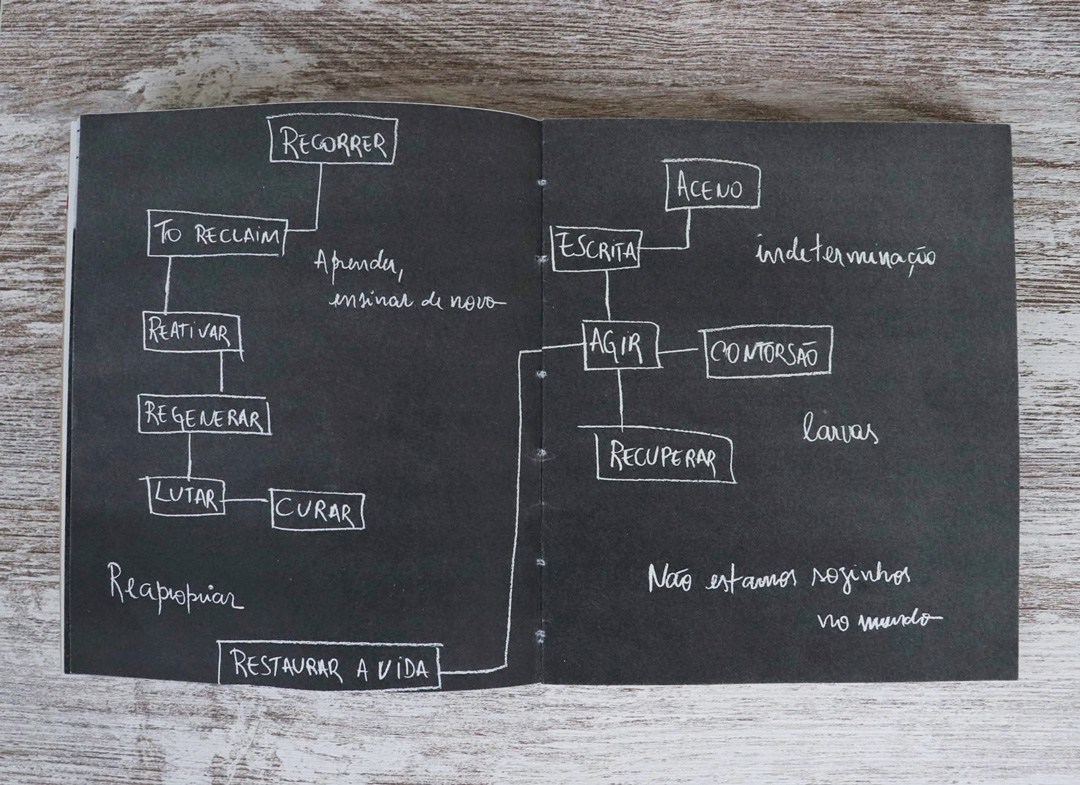 RECORRER
TO RECLAIM
Aprender,
ensinar de novo
REATIVAR
REGENERAR
LUTAR
CURAR
Reapropriar
RESTAURAR A VIDA
ACENO
ESCRITA
indeterminação
AGIR
CONTORSÃO
larvas
RECUPERAR
Não estamos sozinhos
no mundo